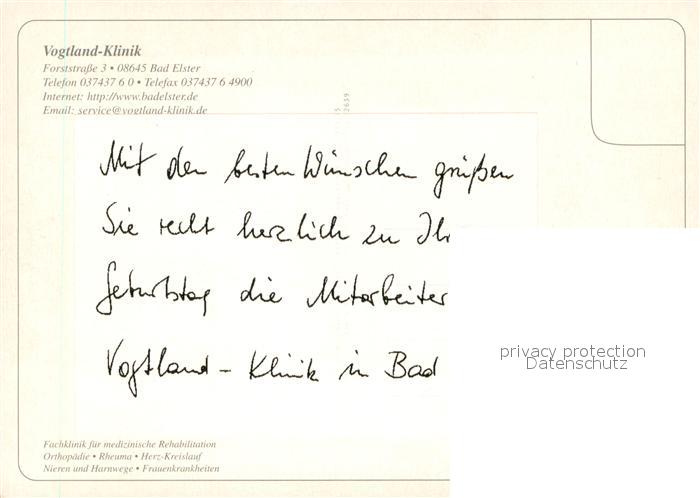 Vogtland-Klinik
Forststraße 3 • 08645 Bad Elster
Telefon 037437 6 0 • Telefax 037437 6 4900
Internet: http://www.badelster.de
Email: service@vogtland-klinik.de
2639
Mit den besten Wünschen grüßen
Sie recht herzlich zu Ih
Geburtstag die Mitarbeiter
Vogtland - Klinik in Bad
privacy protection
Datenschutz
Fachklinik für medizinische Rehabilitation
Orthopädie • Rheuma • Herz-Kreislauf
Nieren und Harnwege • Frauenkrankheiten